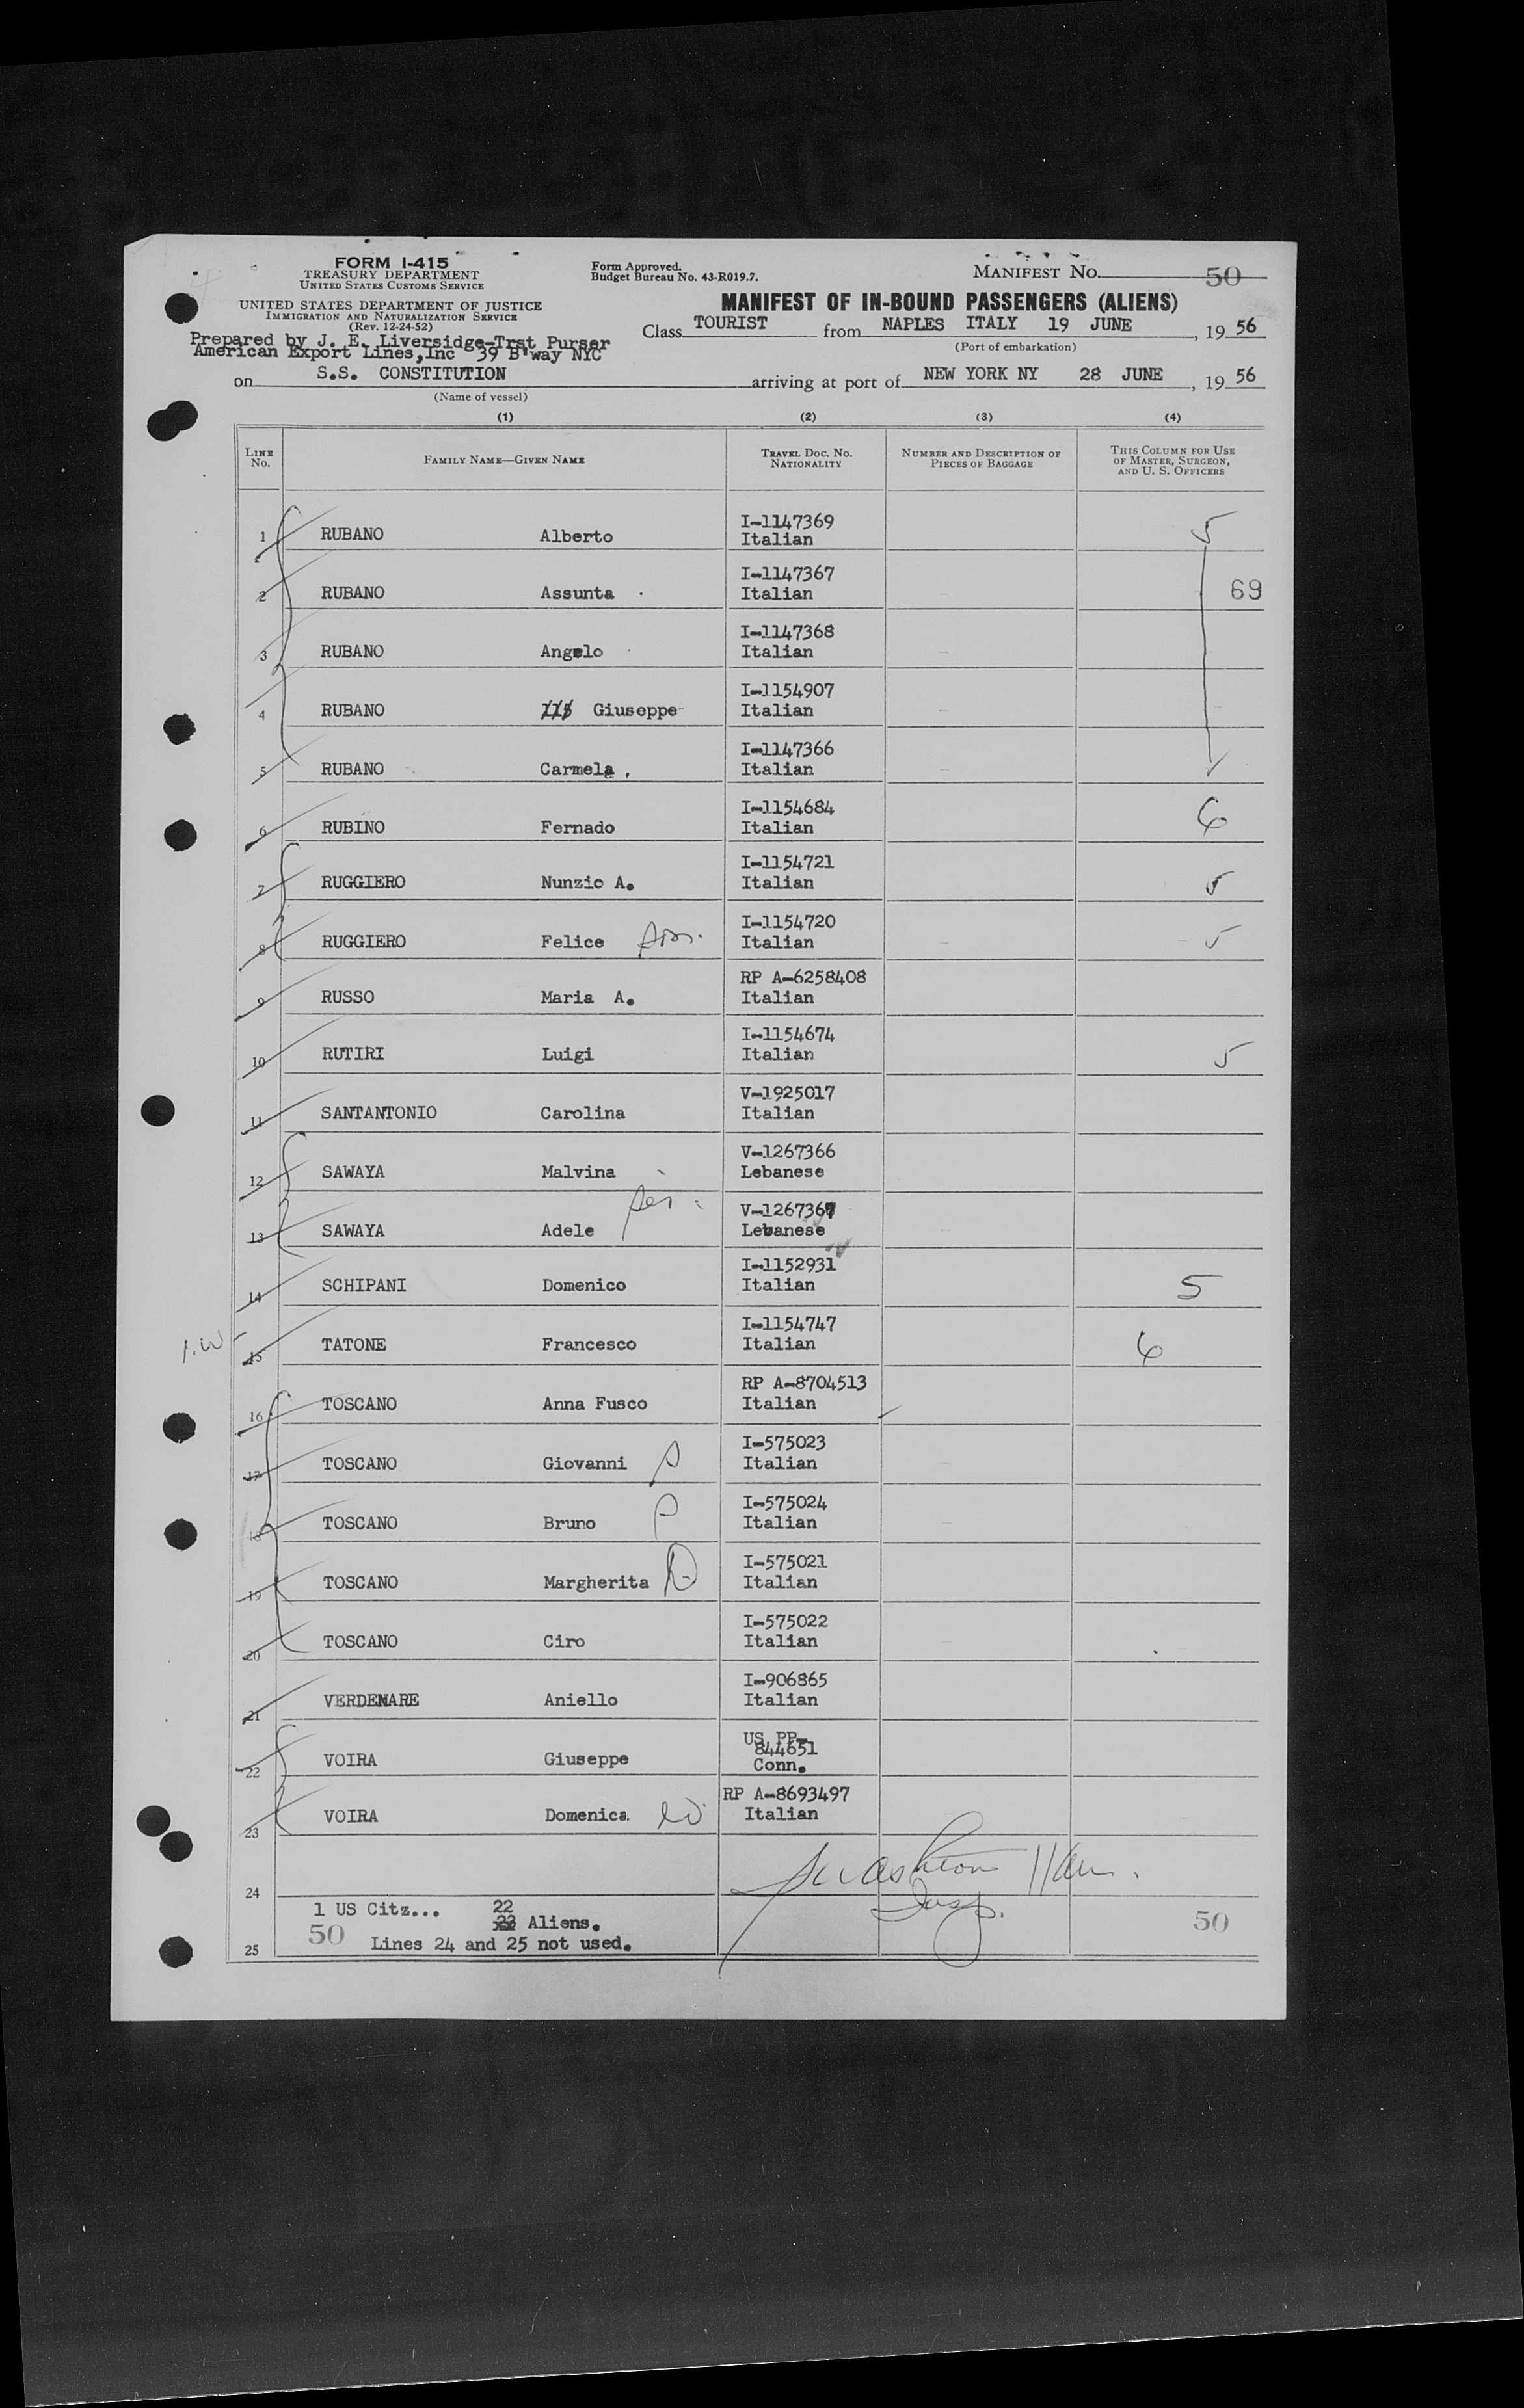 FORM I-415
TREASURY DEPARTMENT
UNITED STATES CUSTOMS SERVICE
UNITED STATES DEPARTMENT OF JUSTICE
IMMIGRATION AND NATURALIZATION SERVICE
(Rev. 12-24-52)
Prepared by J. E. Liversidge-Trst Purser
American Export Lines,Inc 39 B'way NYC
Form Approved.
Budget Bureau No. 43-R019.7.
MANIFEST NO. 50
MANIFEST OF IN-BOUND PASSENGERS (ALIENS)
Class TOURIST from NAPLES ITALY 19 JUNE, 19 56
(Port of embarkation)
on S.S. CONSTITUTION arriving at port of NEW YORK NY 28 JUNE, 19 56
(Name of vessel)
(1) (2) (3) (4)
LINE NO. FAMILY NAME—GIVEN NAME TRAVEL DOC. NO. NATIONALITY NUMBER AND DESCRIPTION OF PIECES OF BAGGAGE THIS COLUMN FOR USE OF MASTER, SURGEON, AND U. S. OFFICERS
1 RUBANO Alberto I-1147369 Italian 5
2 RUBANO Assunta I-1147367 Italian 69
3 RUBANO Angelo I-1147368 Italian
4 RUBANO Giuseppe I-1154907 Italian
5 RUBANO Carmela I-1147366 Italian
6 RUBINO Fernado I-1154684 Italian 6
7 RUGGIERO Nunzio A. I-1154721 Italian 5
8 RUGGIERO Felice I-1154720 Italian 5
9 RUSSO Maria A. RP A-6258408 Italian
10 RUTIRI Luigi I-1154674 Italian 5
11 SANTANTONIO Carolina V-1925017 Italian
12 SAWAYA Malvina V-1267366 Lebanese
13 SAWAYA Adele V-1267367 Lebanese
14 SCHIPANI Domenico I-1152931 Italian 5
15 TATONE Francesco I-1154747 Italian 6
16 TOSCANO Anna Fusco RP A-8704513 Italian
17 TOSCANO Giovanni I-575023 Italian
18 TOSCANO Bruno I-575024 Italian
19 TOSCANO Margherita I-575021 Italian
20 TOSCANO Ciro I-575022 Italian
21 VERDEMARE Aniello I-906865 Italian
22 VOIRA Giuseppe US PP- 844651 Conn.
23 VOIRA Domenica RP A-8693497 Italian
24
1 US Citz... 22 Aliens.
50 Lines 24 and 25 not used. 50
25